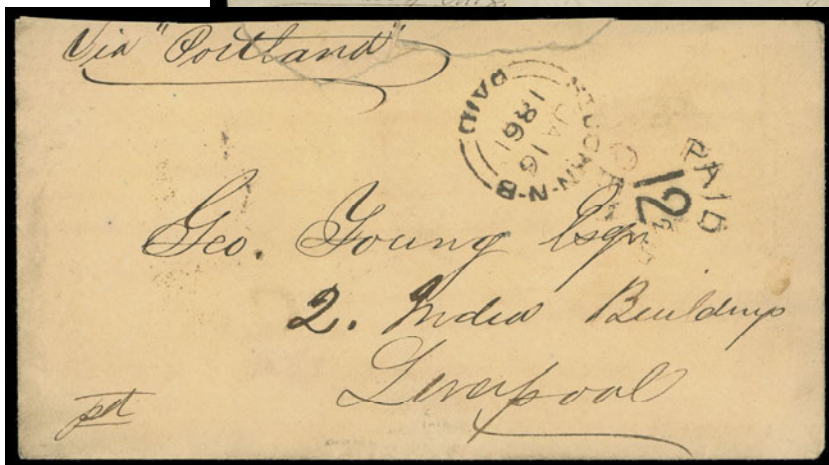 Via "Portland"
PAID
ST JOHN-N-B
JA 16
1861
PAID
12
Geo. Young Esqr
2. India Buildings
Liverpool
pd